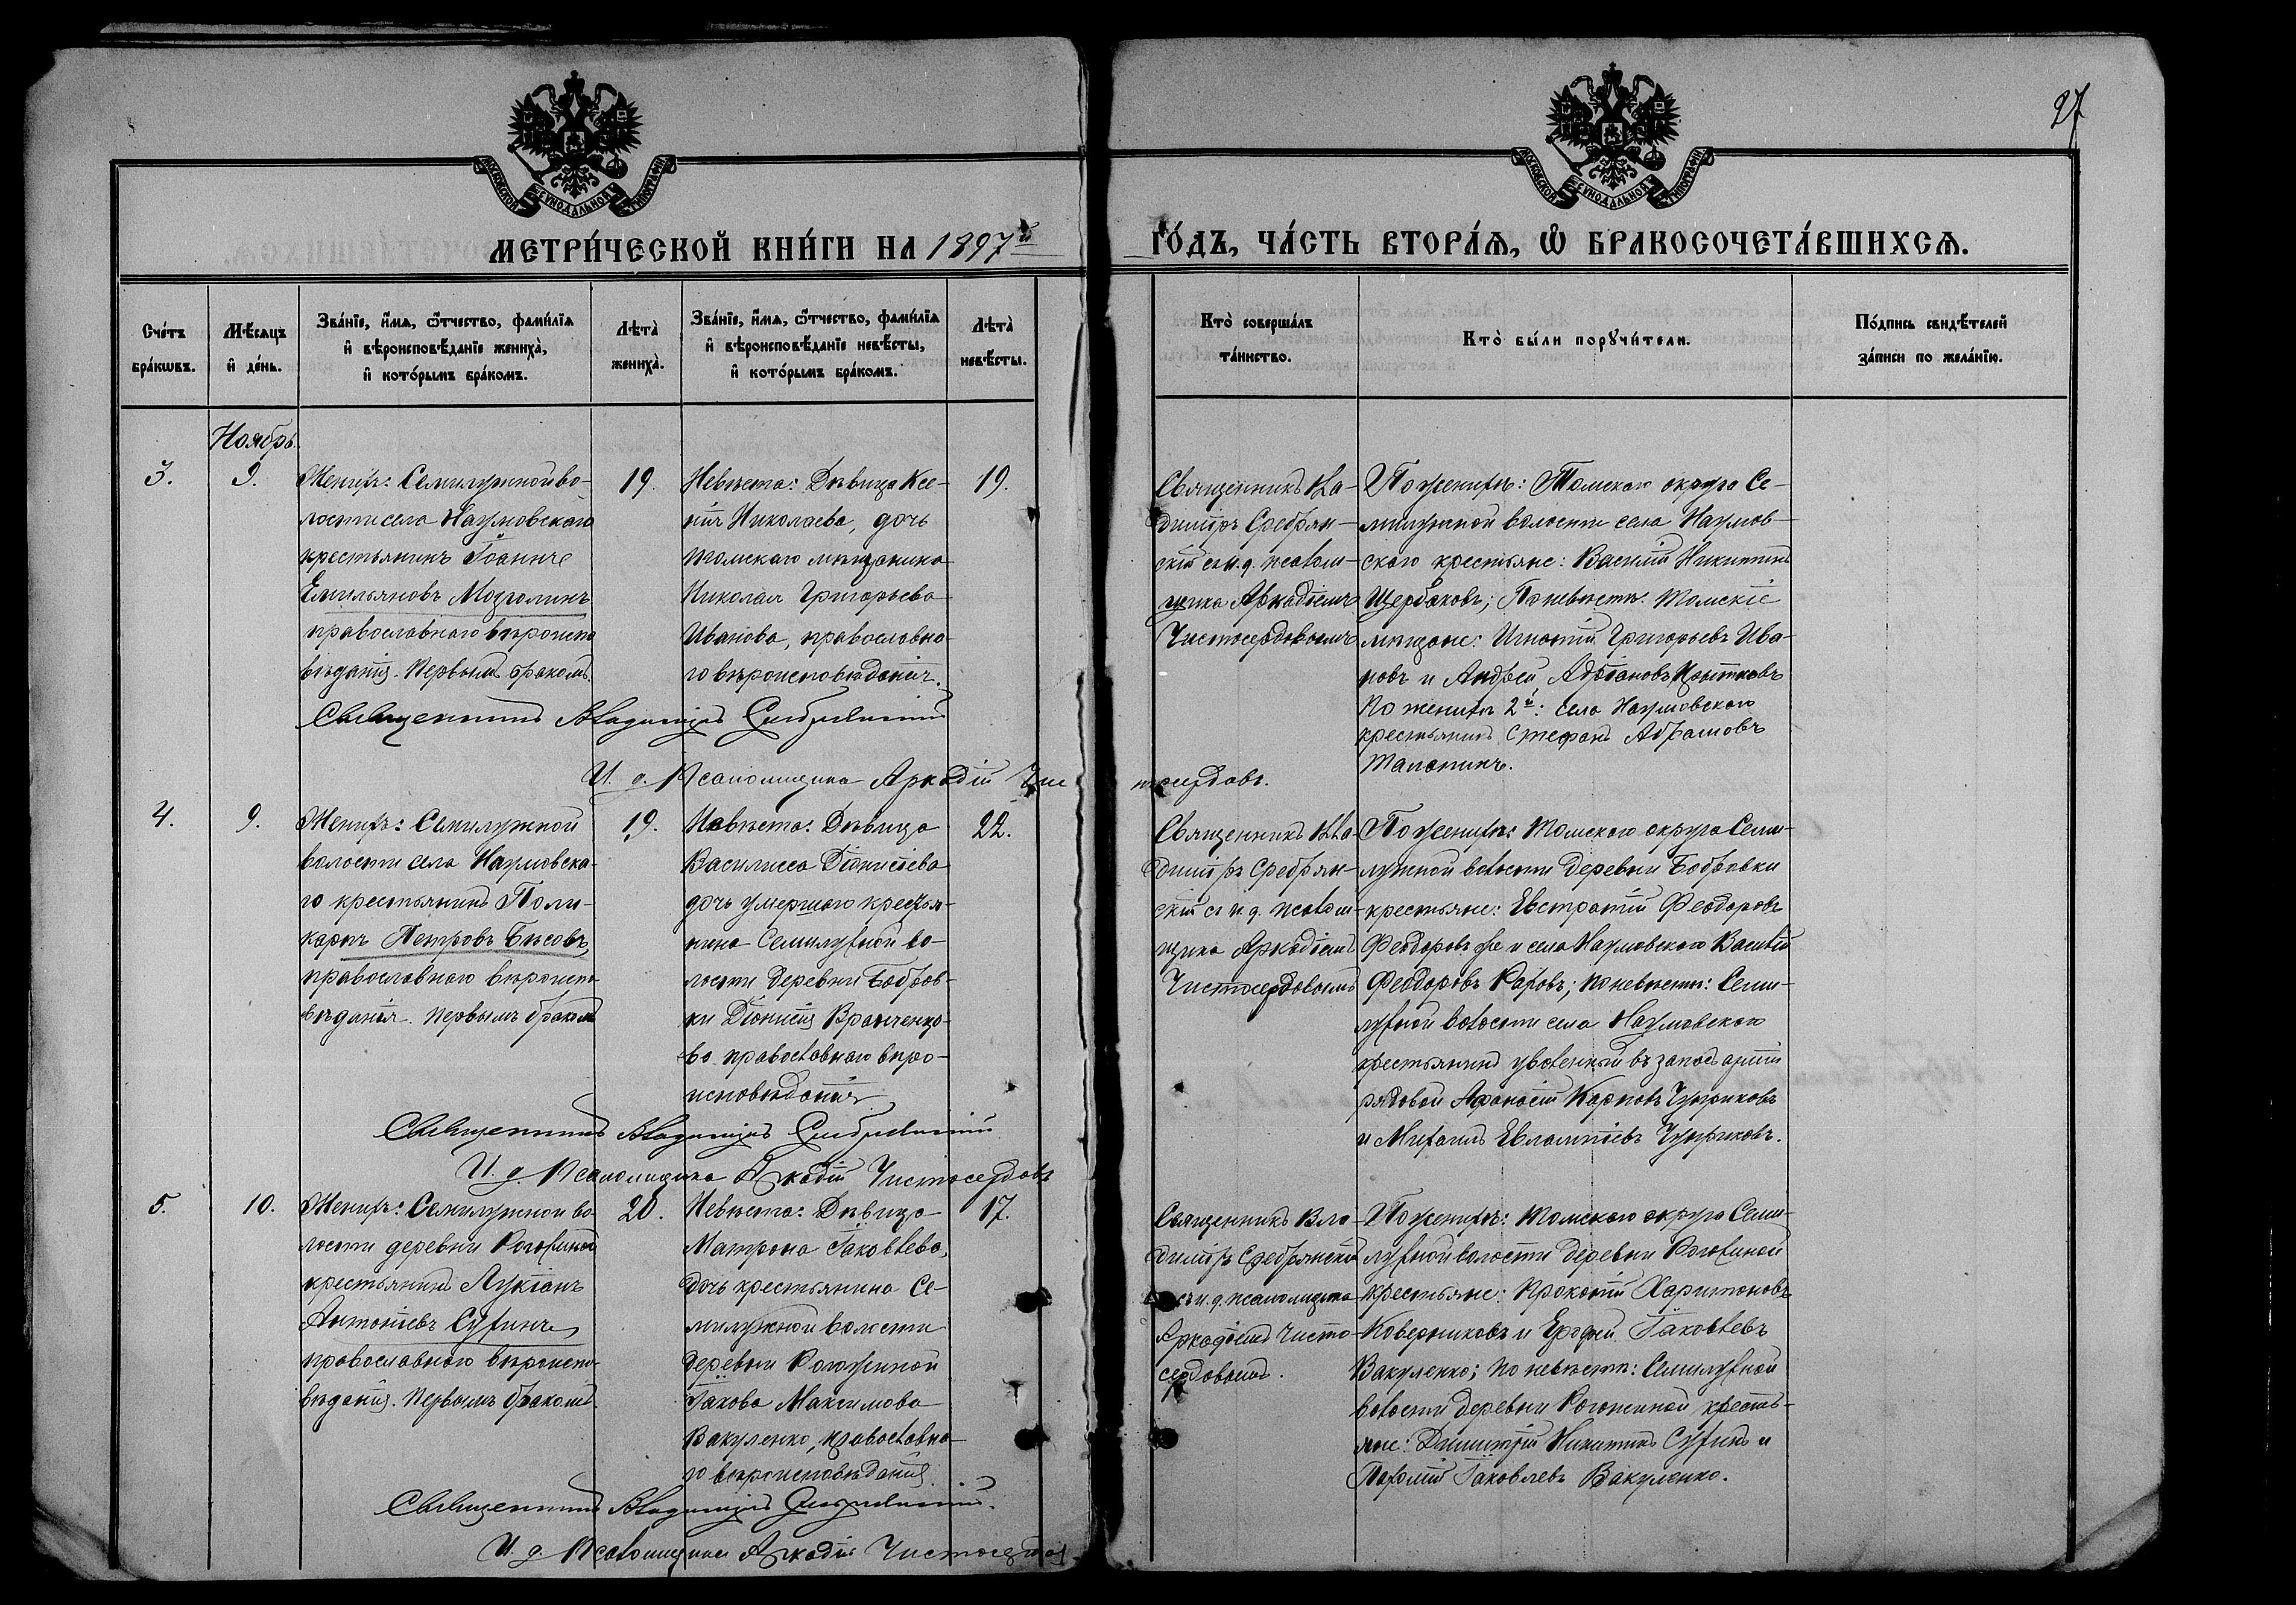 27
МОСКОВСКОЙ СѴНОДАЛЬНОЙ ТИПОГРАФІИ
МОСКОВСКОЙ СѴНОДАЛЬНОЙ ТИПОГРАФІИ
МЕТРИ́ЧЕСКОЙ КНИ́ГИ НА 1897й
ГО́ДЪ, ЧА́СТЬ ВТОРА́Ѧ, Ѡ҆ БРАКОСОЧЕТА́ВШИХСѦ.
Сче́тъ
бра́кѡвъ.
Мѣ́сяцъ
и҆ де́нь.
Зва́нїе, и҆́мѧ, ѻ҆́тчество, фами́лїѧ
и҆ вѣроисповѣ́данїе жениха̀,
и҆ кото́рымъ бра́комъ.
Лѣта̀
жениха̀.
Зва́нїе, и҆́мѧ, ѻ҆́тчество, фами́лїѧ
и҆ вѣроисповѣ́данїе невѣ́сты,
и҆ кото́рымъ бра́комъ.
Лѣта̀
невѣ́сты.
Кто̀ соверша́лъ
та́инство.
Кто̀ бы́ли порꙋчи́тели.
По́дпись свидѣ́телей
за́писи по жела́нїю.
Ноябрь.
3.
9.
Женихъ: Семилужной во-
лости села Наумовскаго
крестьянинъ Іоаннъ
Емильяновъ Мозголинъ
православнаго вѣроиспо
вѣданія. Первымъ бракомъ.
19.
Невѣста: Дѣвица Ксе-
нія Николаева, дочь
томскаго мѣщанина
Николая Григорьева
Иванова, православна-
го вѣроисповѣданія.
19.
Священникъ Вла-
диміръ Сребрян-
скій съ и. д. псалом-
щика Аркадіемъ
Чистосердовымъ
По женихѣ: Томскаго округа Се-
милужной волости села Наумов-
скаго крестьяне: Василій Никитинъ
Щербаковъ; По невѣстѣ: Томскіе
мѣщане: Игнатій Григорьевъ Ива-
новъ и Андрей
По женихѣ 2й: села Наумовскаго
крестьянинъ Стефанъ Абрамовъ
Маланинъ.
Священникъ Владиміръ Сребрянскій
И. д. Псаломщика Аркадій Чистосердовъ.
4.
9.
Женихъ: Семилужной
волости села Наумовска-
го крестьянинъ Поли-
карпъ Петровъ Бѣсовъ,
православнаго вѣроиспо
вѣданія. Первымъ бракомъ
19.
Невѣста: Дѣвица
Василисса Діонисіева
дочь умершаго крестья-
нина Семилужной во-
лости деревни Бобров-
ки Діонисія Вранченко-
ва православнаго вѣро-
исповѣданія
22.
Священникъ Вла-
диміръ Сребрян-
скій съ и. д. псалом-
щика Аркадіемъ
Чистосердовымъ
По женихѣ: Томскаго округа Семи-
лужной волости деревни Бобровки
крестьяне: Евстратій Феодоровъ
Феодоровъ же и села Наумовскаго Василій
Феодоровъ Раховъ; по невѣстѣ: Семи-
лужной волости села Наумовскаго
крестьянинъ уволенный въ запасъ арміи
рядовой Афанасій Карповъ Чужиковъ
и Михаилъ Евлампіевъ Чужиковъ.
Священникъ Владиміръ Сребрянскій
И. д. Псаломщика Аркадій Чистосердовъ
5.
10.
Женихъ: Семилужной во
лости деревни Рогожиной
крестьянинъ Лукіанъ
Антоніевъ Сухинъ,
православнаго вѣроиспо-
вѣданія. Первымъ бракомъ.
20.
Невѣста: Дѣвица
Матрона Іаковлева,
дочь крестьянина Се-
милужной волости
деревни Рогожиной
Іакова Максимова
Вакуленко, православна-
го вѣроисповѣданія
17.
Священникъ Вла-
диміръ Сребрянскій
съ и. д. псаломщика
Аркадіемъ Чисто-
сердовымъ.
По женихѣ: Томскаго округа Семи-
лужной волости деревни Рогожиной
крестьяне: Прокопій Харитоновъ
Коверниковъ и Ерофей Іаковлевъ
Вакуленко; по невѣстѣ: Семилужной
волости деревни Рогожиной кресть-
яне: Димитрій Никитинъ Сухинъ и
Пахомій Іаковлевъ Вакуленко.
Священникъ Владиміръ Сребрянскій.
И. д. Псаломщика Аркадій Чистосердов